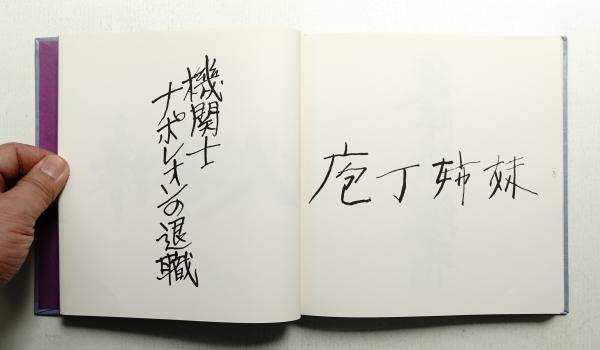 機関士
ナポレオンの退職
庖丁姉妹